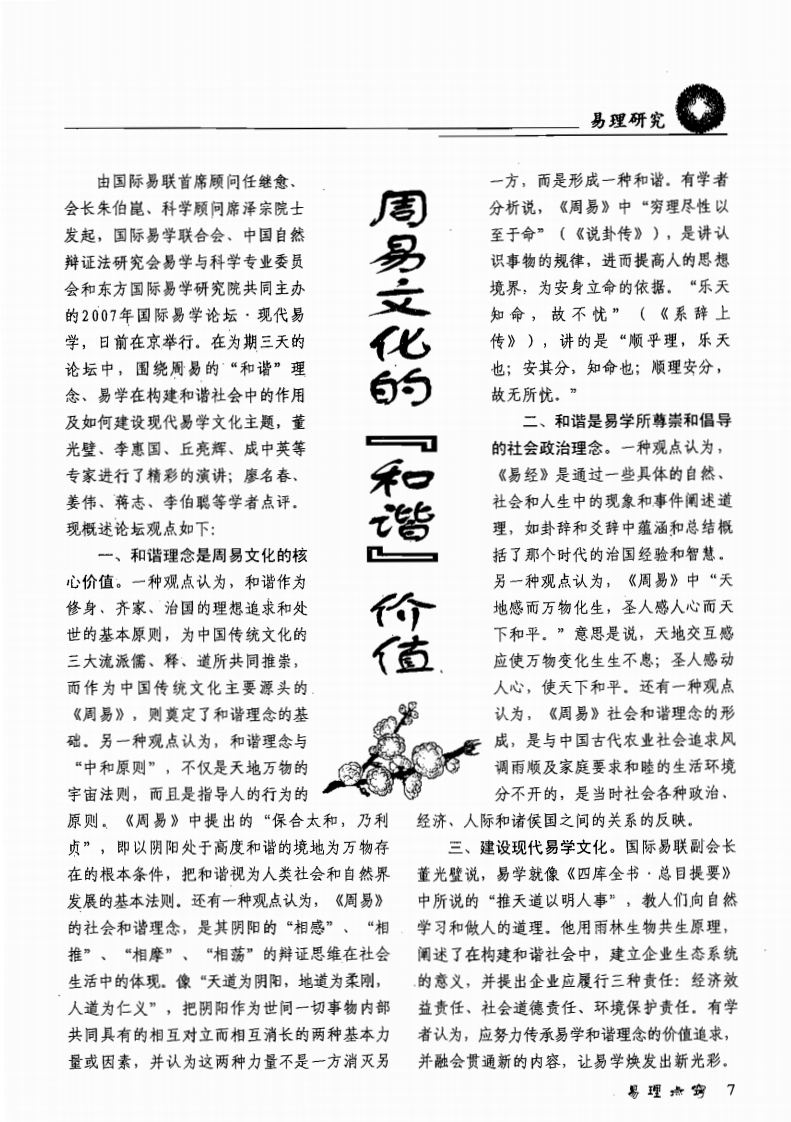 易理研究
周易文化的『和谐』价值
由国际易联首席顾问任继愈、
会长朱伯崑、科学顾问席泽宗院士
发起，国际易学联合会、中国自然
辩证法研究会易学与科学专业委员
会和东方国际易学研究院共同主办
的2007年国际易学论坛·现代易
学，日前在京举行。在为期三天的
论坛中，围绕周易的“和谐”理
念、易学在构建和谐社会中的作用
及如何建设现代易学文化主题，董
光璧、李惠国、丘亮辉、成中英等
专家进行了精彩的演讲；廖名春、
姜伟、蒋志、李伯聪等学者点评。
现概述论坛观点如下：
一、和谐理念是周易文化的核
心价值。一种观点认为，和谐作为
修身、齐家、治国的理想追求和处
世的基本原则，为中国传统文化的
三大流派儒、释、道所共同推崇，
而作为中国传统文化主要源头的
《周易》，则奠定了和谐理念的基
础。另一种观点认为，和谐理念与
“中和原则”，不仅是天地万物的
宇宙法则，而且是指导人的行为的
原则。《周易》中提出的“保合太和，乃利
贞”，即以阴阳处于高度和谐的境地为万物存
在的根本条件，把和谐视为人类社会和自然界
发展的基本法则。还有一种观点认为，《周易》
的社会和谐理念，是其阴阳的“相感”、“相
推”、“相摩”、“相荡”的辩证思维在社会
生活中的体现。像“天道为阴阳，地道为柔刚，
人道为仁义”，把阴阳作为世间一切事物内部
共同具有的相互对立而相互消长的两种基本力
量或因素，并认为这两种力量不是一方消灭另
一方，而是形成一种和谐。有学者
分析说，《周易》中“穷理尽性以
至于命”（《说卦传》），是讲认
识事物的规律，进而提高人的思想
境界，为安身立命的依据。“乐天
知命，故不忧”（《系辞上
传》），讲的是“顺乎理，乐天
也；安其分，知命也；顺理安分，
故无所忧。”
二、和谐是易学所尊崇和倡导
的社会政治理念。一种观点认为，
《易经》是通过一些具体的自然、
社会和人生中的现象和事件阐述道
理，如卦辞和爻辞中蕴涵和总结概
括了那个时代的治国经验和智慧。
另一种观点认为，《周易》中“天
地感而万物化生，圣人感人心而天
下和平。”意思是说，天地交互感
应使万物变化生生不息；圣人感动
人心，使天下和平。还有一种观点
认为，《周易》社会和谐理念的形
成，是与中国古代农业社会追求风
调雨顺及家庭要求和睦的生活环境
分不开的，是当时社会各种政治、
经济、人际和诸侯国之间的关系的反映。
三、建设现代易学文化。国际易联副会长
董光璧说，易学就像《四库全书·总目提要》
中所说的“推天道以明人事”，教人们向自然
学习和做人的道理。他用雨林生物共生原理，
阐述了在构建和谐社会中，建立企业生态系统
的意义，并提出企业应履行三种责任：经济效
益责任、社会道德责任、环境保护责任。有学
者认为，应努力传承易学和谐理念的价值追求，
并融会贯通新的内容，让易学焕发出新光彩。
易理点窍 7